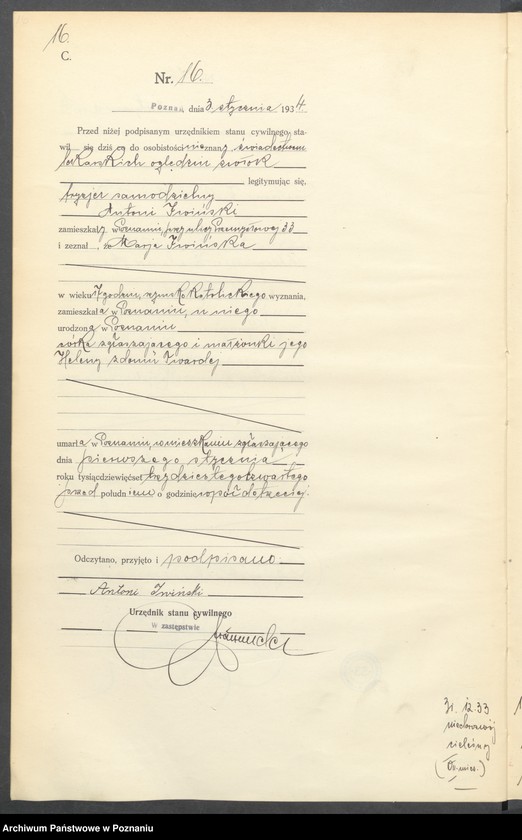 16.
C.
Nr. 16.
Poznań, dnia 3 stycznia 1934
Przed niżej podpisanym urzędnikiem stanu cywilnego sta-
wił się dziś co do osobistości nieznany, świadectwem
lekarskich oględzin zwłok
legitymując się,
fryzjer samodzielny
Antoni Iwiński
zamieszkały w Poznaniu, przy ulicy Przemysłowej 33
i zeznał, że Marja Iwińska
w wieku 7 godzin, rzymsko katolickiego wyznania,
zamieszkała w Poznaniu, u niego
urodzona w Poznaniu
córka zgłaszającego i małżonki jego
Heleny z domu Twardej
umarła w Poznaniu, w mieszkaniu zgłaszającego
dnia pierwszego stycznia
roku tysiącdziewięćset trzydziestego czwartego
przed południem o godzinie wpół do trzeciej.
Odczytano, przyjęto i podpisano
Antoni Iwiński
Urzędnik stanu cywilnego
w zastępstwie
31. 12. 33
Archiwum Państwowe w Poznaniu